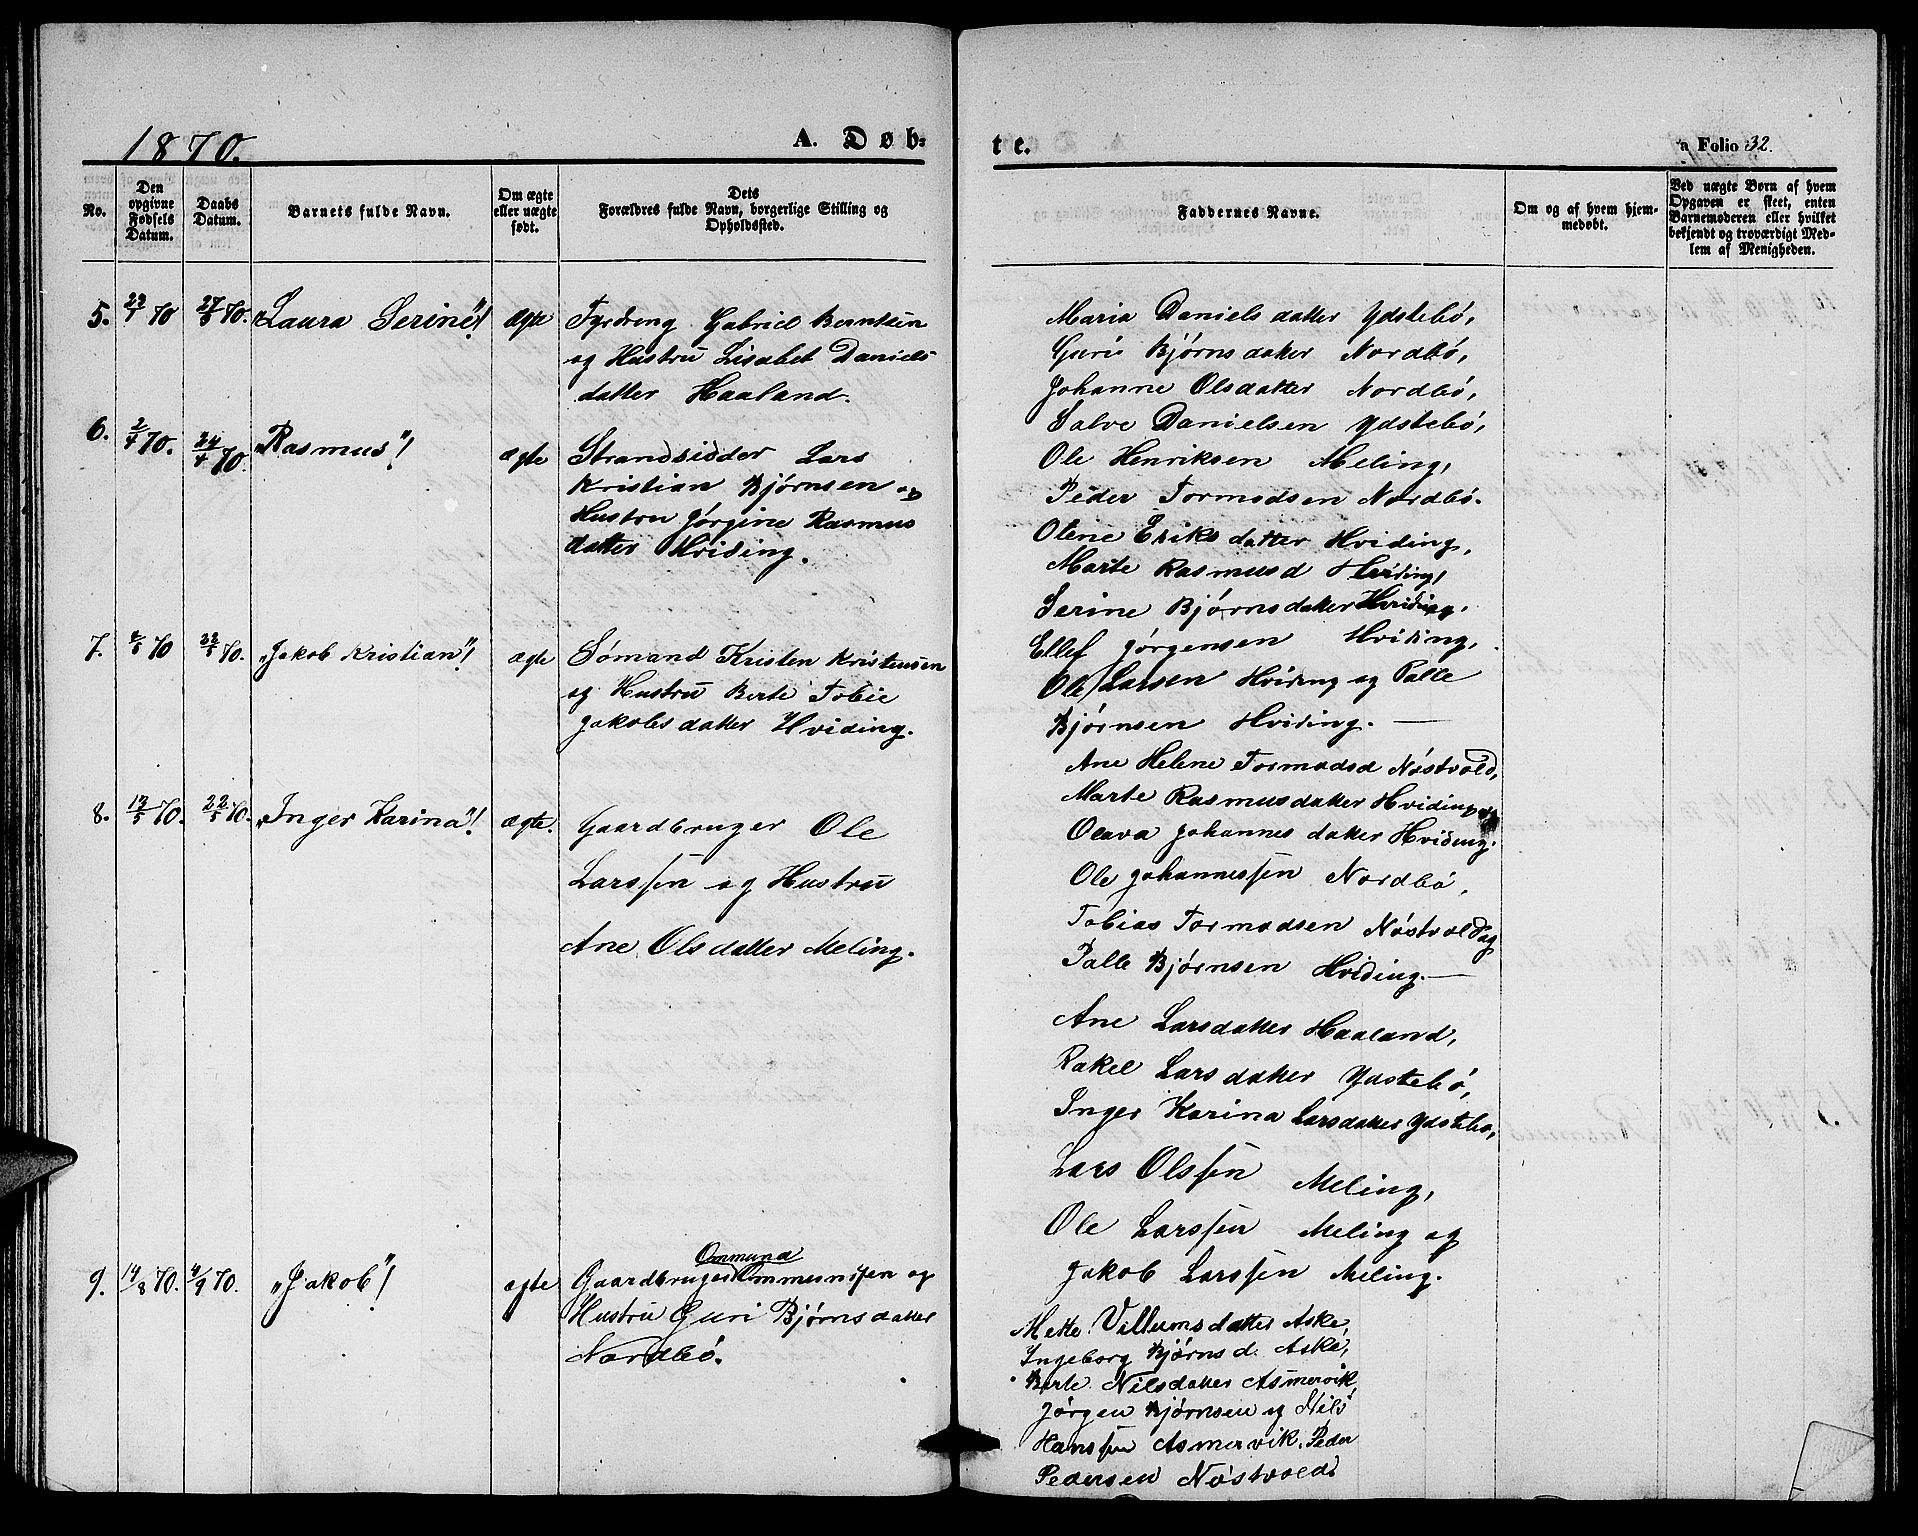 1870.
A. Døb-
te.
a Folio 32.
No.
Den
opgivne
Fødsels
Datum.
Daabs
Datum.
Barnets fulde Navn.
Om ægte
eller uægte
født.
Dets
Forældres fulde Navn, borgerlige Stilling og
Opholdssted.
Faddernes Navne.
Om og af hvem hjem-
medøbt.
Ved uægte Børn af hvem
Opgaven er skeet, enten
Barnemoderen eller hvilket
bekjendt og troværdigt Med-
lem af Menigheden.
5. 70 27/3 70. "Laura Serine"! ægte Fyrdreng Gabriel Berntsen
og Hustru Lisabet Daniels
datter Haaland.
Maria Danielsdatter Ydstebø,
Guri Bjørnsdatter Nordbø,
Johanne Olsdatter Nordbø,
Salve Danielsen Ydstebø,
Ole Henriksen Meling,
Peder Tormodsen Nordbø.
6. 2/4 70. 24/4 70 "Rasmus"! ægte Strandsidder Lars
Kristian Bjørnsen og
Hustru Jørgine Rasmus
datter Hviding.
Olene Eriksdatter Hviding,
Marte Rasmusd Hviding,
Serine Bjørnsdatter Hviding,
Ellef Jørgensen Hviding,
Ole Larsen Hviding og Palle
Bjørnsen Hviding.
7. 70 22/5 70. "Jakob Kristian"! ægte Sømand Kristen Kristensen
og Hustru Berte Tobie
Jakobsdatter Hviding.
Ane Helene Tormodsd Nøstvold,
Marte Rasmusdatter Hviding og
Olava Johannesdatter Hviding.
Ole Johannessen Nordbø,
Tobias Tormodsen Nøstvold og
Palle Bjørnsen Hviding.
8. 13/5 70. 22/5 70. "Inger Karina"! ægte. Gaardbruger Ole
Larssen og Hustru
Ane Olsdatter Meling.
Ane Larsdatter Haaland,
Rakel Larsdatter Ydstebø,
Inger Karina Larsdatter Ydstebø,
Lars Olssen Meling,
Ole Larssen Meling og
Jakob Larssen Meling.
9. 14/8 70. 4/9 70. "Jakob"! ægte Gaardbruger Ommund Ommensen og
Hustru Guri Bjørnsdatter
Nordbø.
Mette Villumsdatter Aske,
Ingeborg Bjørnsd. Aske,
Berte Nilsdatter Asmervik,
Jørgen Bjørnsen og Nils
Hanssen Asmervik. Peder
Pedersen Nøstvold.